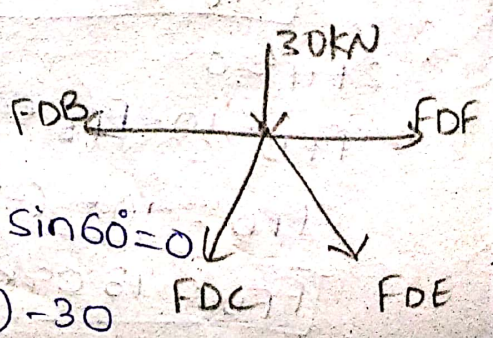 30KN
FDB FDF
sin60°=0
FDC FDE
)-30